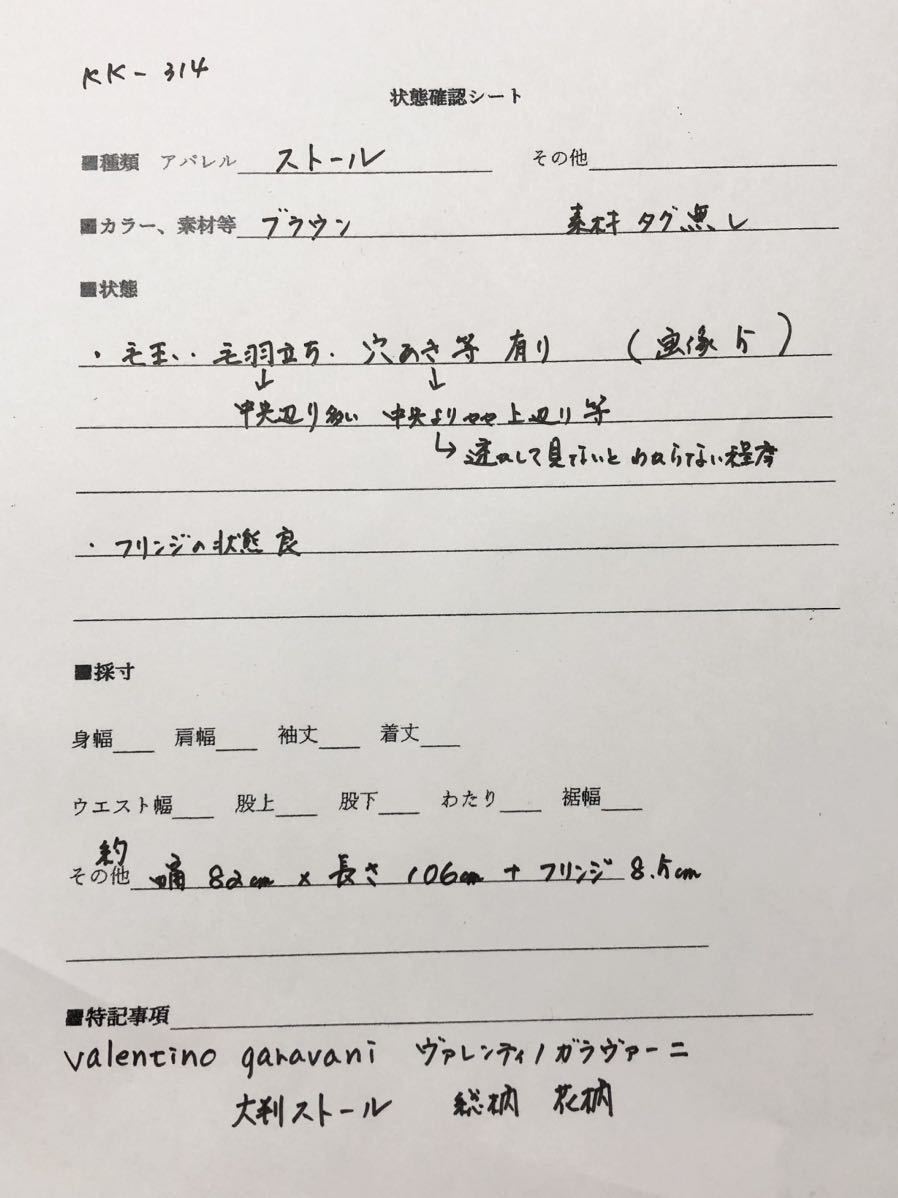 KK-314
状態確認シート
■種類 アパレル ストール その他
■カラー、素材等 ブラウン 素材タグ無し
■状態
・毛玉、・毛羽立ち・穴あき等 有り (画像5)
↓ ↓
中央辺り多い 中央よりやや上辺り等
↳透かして見てないとわからない程度
・フリンジの状態 良
■採寸
身幅 肩幅 袖丈 着丈
ウエスト幅 股上 股下 わたり 裾幅
その他 約 幅 82cm × 長さ 106cm + フリンジ 8.5cm
■特記事項
valentino garavani ヴァレンティノガラヴァーニ
大判ストール 総柄 花柄